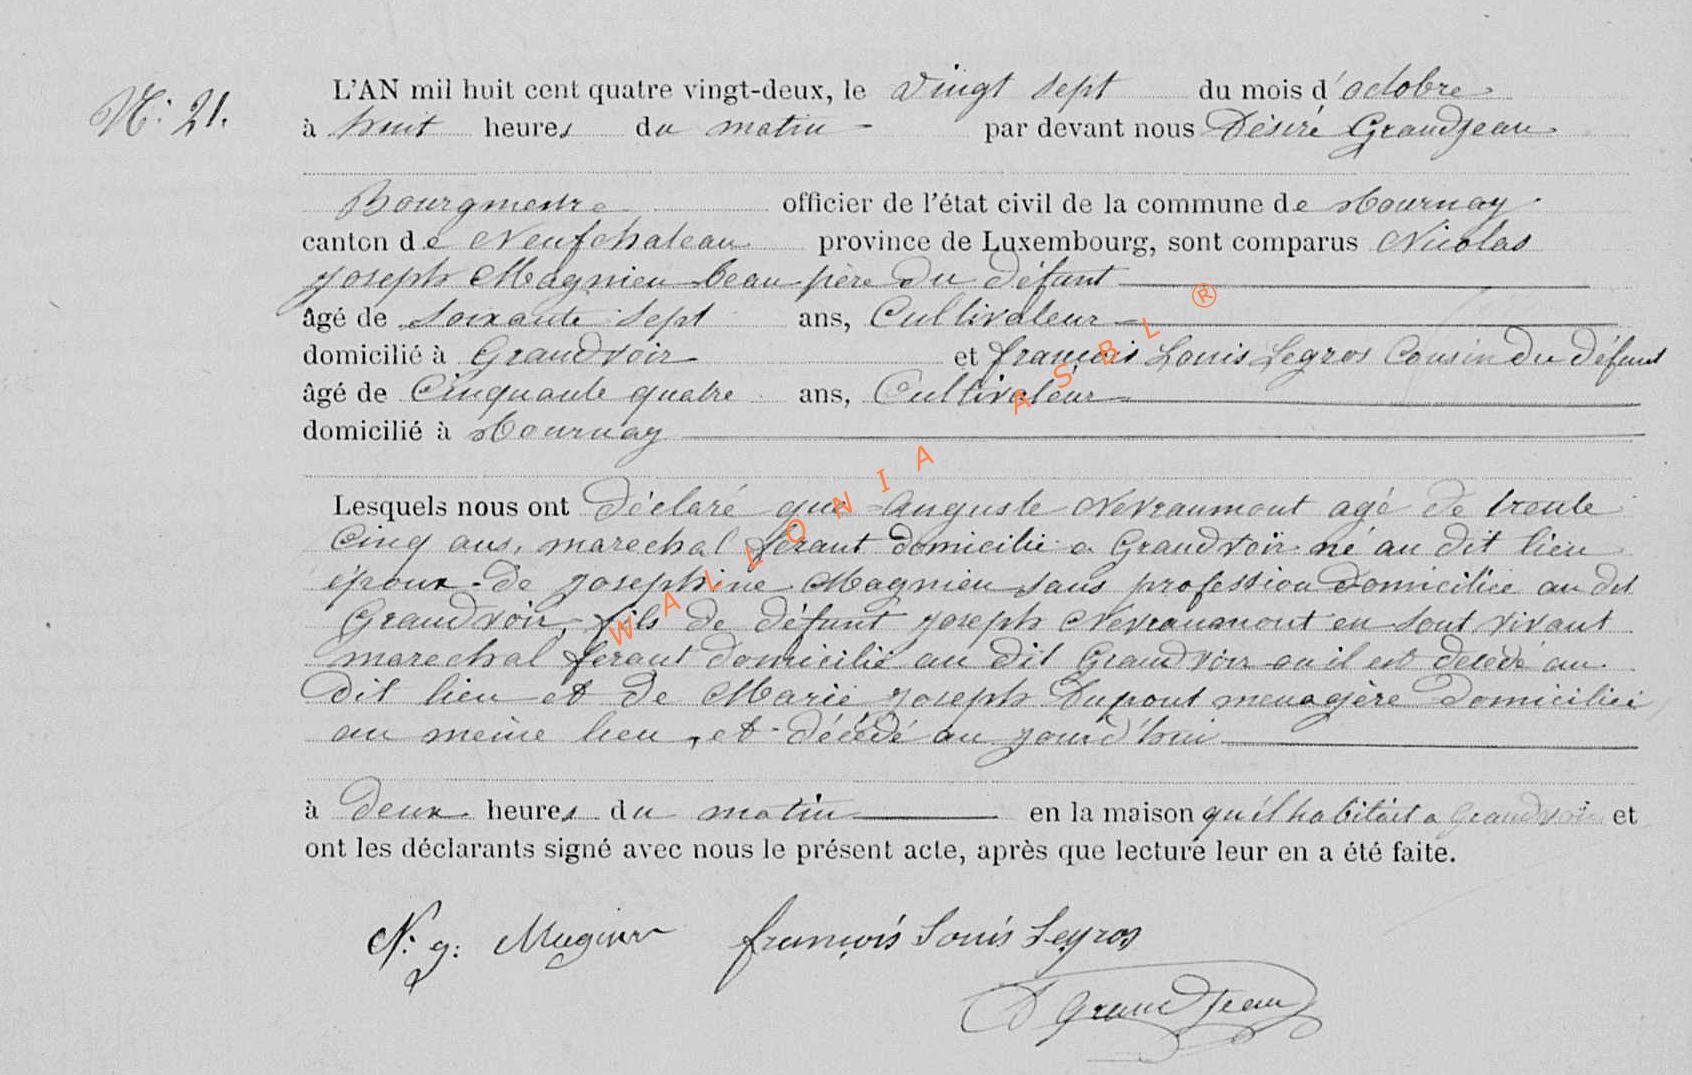 N: 21.
L'AN mil huit cent quatre vingt-deux, le vingt sept du mois d'octobre
à huit heures du matin par devant nous Désiré Grandjean
Bourgmestre officier de l'état civil de la commune de Tournay
canton de Neufchateau province de Luxembourg, sont comparus Nicolas
Joseph Magnieu beau père du défunt
âgé de soixante sept ans, Cultivateur
domicilié à Grandvoir et françois Louis Legros Cousin du défunt
âgé de Cinquante quatre ans, Cultivateur
domicilié à Tournay
Lesquels nous ont déclaré que Auguste Nevraumont agé de trente
Cinq ans, marechal ferant domicilié a Grandvoir né au dit lieu
époux de Josephine Magnieu sans profession domiciliée au dit
Grandvoir, fils de défunt joseph Nevraumont en sont vivant
marechal ferant domicilié au dit Grandvoir ou il est decedé au
dit lieu et de Marie joseph Dupont menagère domiciliée
au même lieu, et décédé au jourd'hui
à deux heures du matin en la maison qu'il habitait a Grandvoir et
ont les déclarants signé avec nous le présent acte, après que lecture leur en a été faite.
N. j. Magnieu françois Louis Legros
D Grandjean
WALLONIA ASBL ®